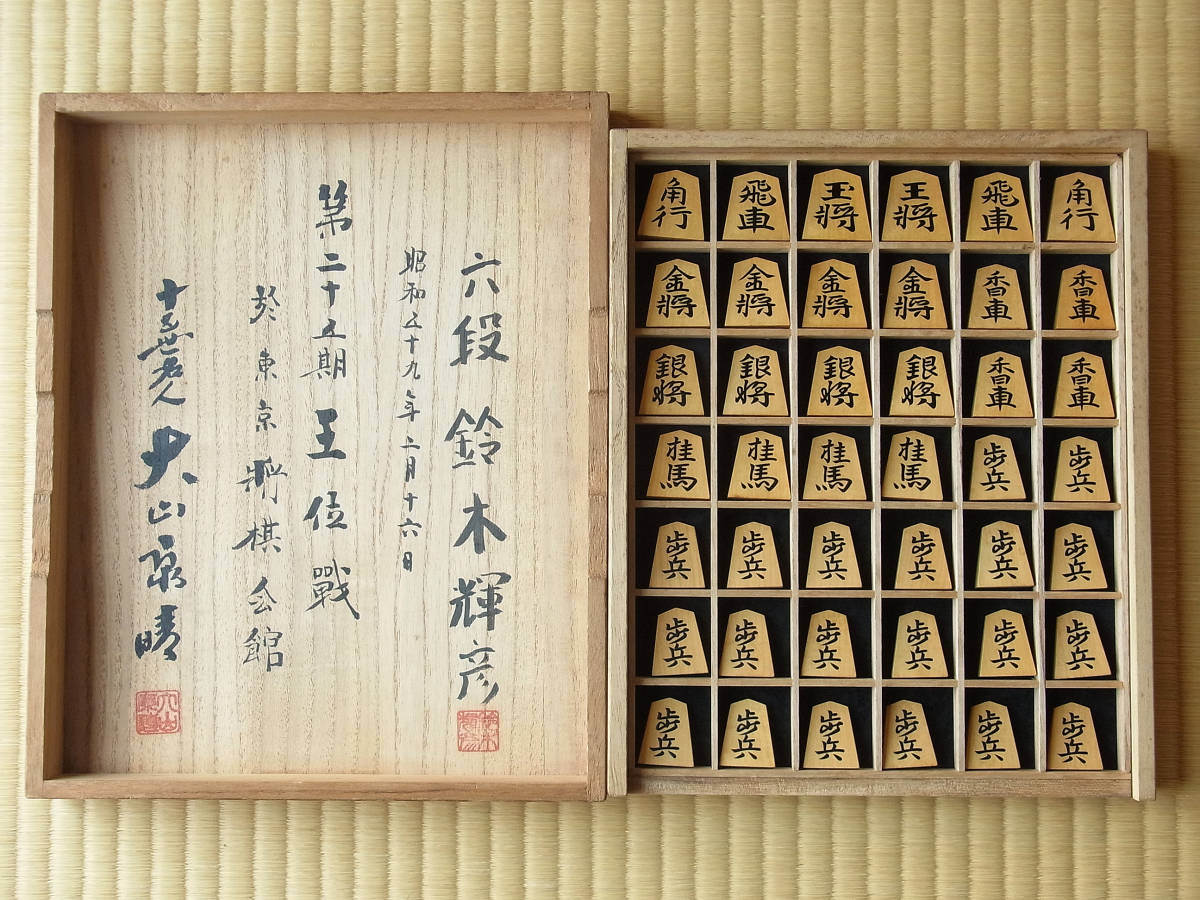 六段 鈴木輝彦
昭和五十九年二月十六日
第二十五期 王位戰
於東京將棋会館
十五世名人 大山康晴
角行 飛車 玉將 王將 飛車 角行
金將 金將 金將 金將 香車 香車
銀將 銀將 銀將 銀將 香車 香車
桂馬 桂馬 桂馬 桂馬 歩兵 歩兵
歩兵 歩兵 歩兵 歩兵 歩兵 歩兵
歩兵 歩兵 歩兵 歩兵 歩兵 歩兵
歩兵 歩兵 歩兵 歩兵 歩兵 歩兵